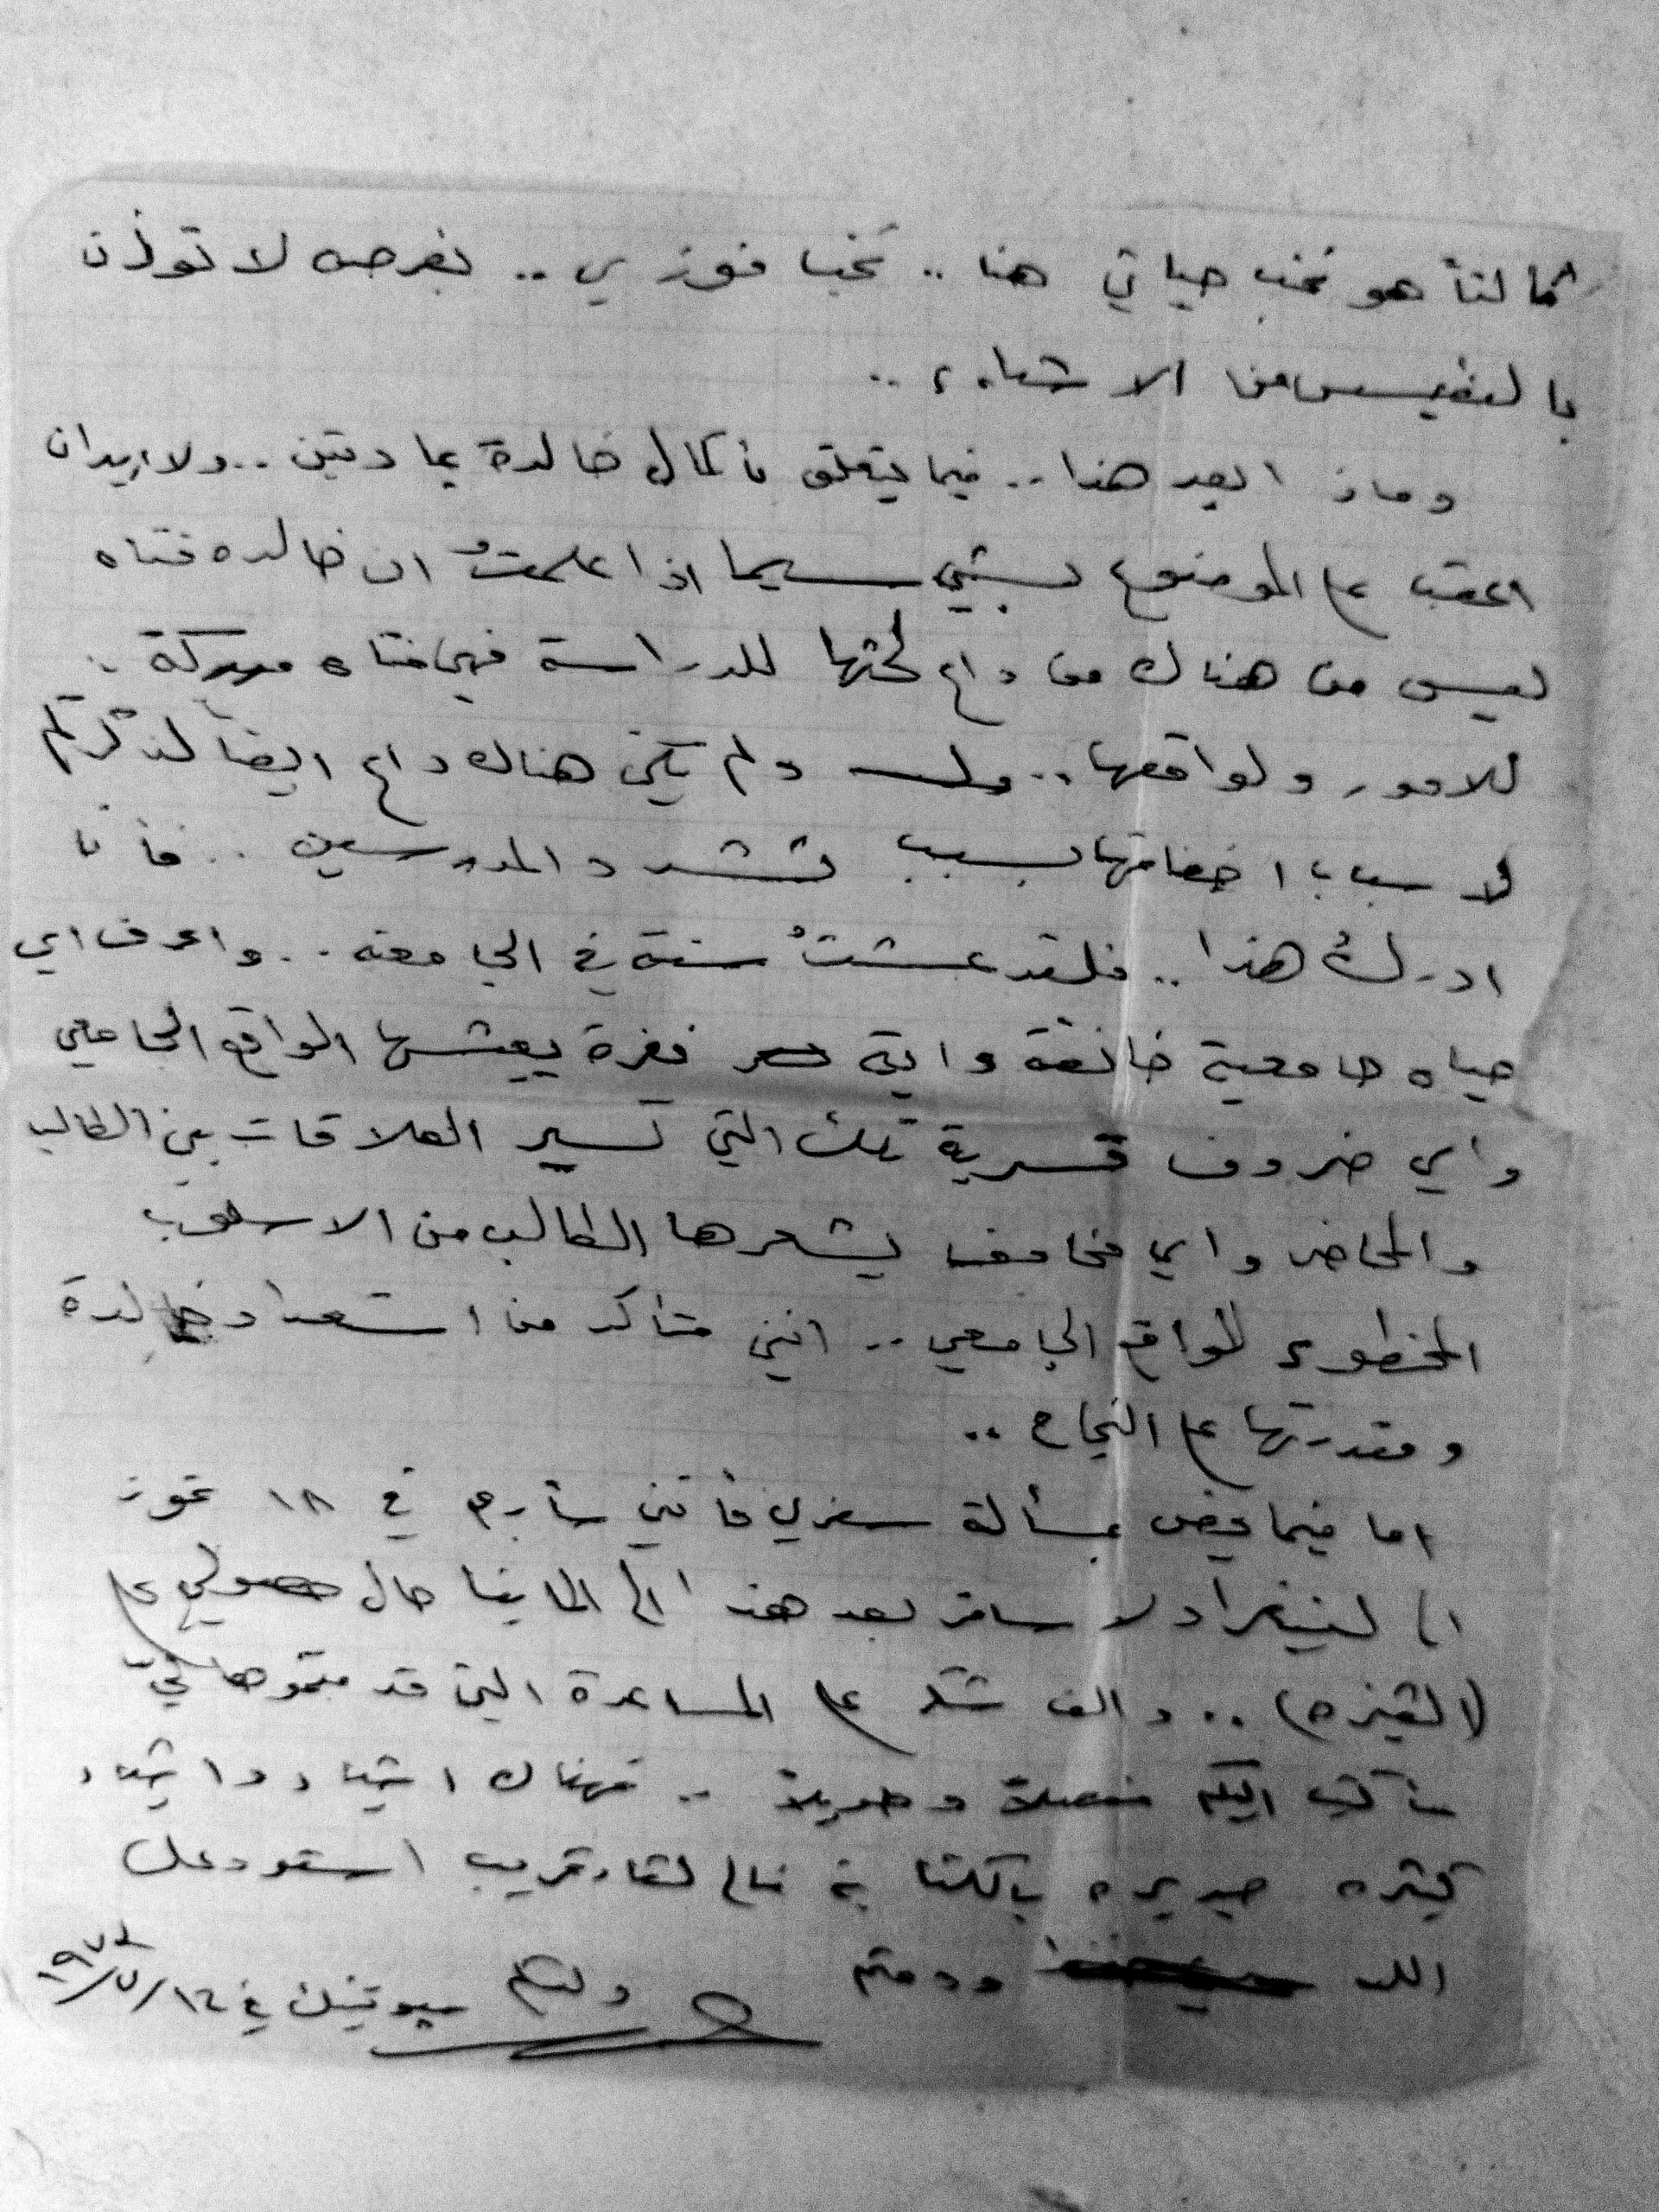 كما لنا هو نخب حياتي هنا .. نخب فوزي .. بفرصه لا توزن
بالنفيس من الاشياء ..
وماذا بعد هذا .. فيما يتعلق باكمال خالدة بمادتين .. ولا اريد ان
اعقب على الموضوع بشيء سيما اذا علمتُ ان خالده فتاه
ليس من هناك من داع لحثها للدراسة فهي فتاه مدركة
للامور ولواقعها .. ولم يكن هناك داع ايضاً لذكركم
لاسباب اخفاقها بسبب تشدد المدرسين .. فأنا
ادركُ هذا .. فلقد عشتُ سنة في الجامعه .. واعرف اي
حياه جامعية خانقة واية فترة يعيشها الواقع الجامعي
واي ضروف قسرية تلك التي تسير العلاقات بين الطالب
والمحاضر واي مخاوف يشعرها الطالب من الاسلوب
للواقع الجامعي .. انني متأكد من استعداد خالدة
ومقدرتها على النجاح ..
اما فيما يخص مسألة سفري فأنني سأبرح في ١٨ تموز
الى لينينغراد لاسافر بعد هذا الى المانيا حال حصولي على
(الفيزه) .. والف شكر على المساعدة التي قدمتموها لي
سأكتب اليكم مفصلاً وطويلاً .. فهناك اشياء واشياء
كثيره جديره بالكتابة فالى لقاء قريب استودعكم
الله ودمتم ولدكم في ١٤/٧/١٩٧٤